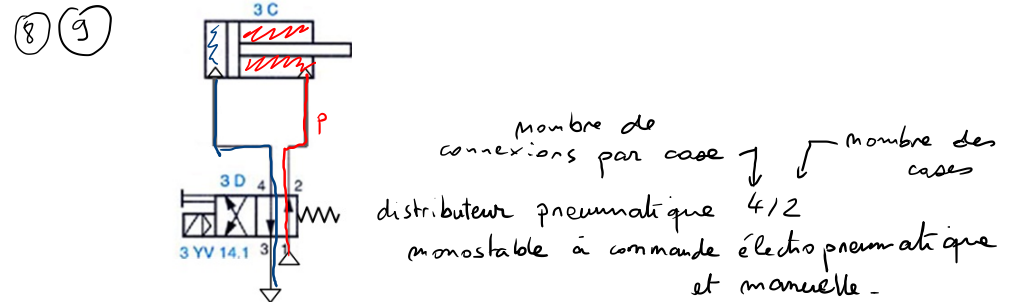 8 9
3 C
P
3 D 4 2
3 YV 14.1 3 1
nombre de
connexions par case
nombre des
cases
distributeur pneumatique 4/2
monostable à commande électropneumatique
et manuelle.